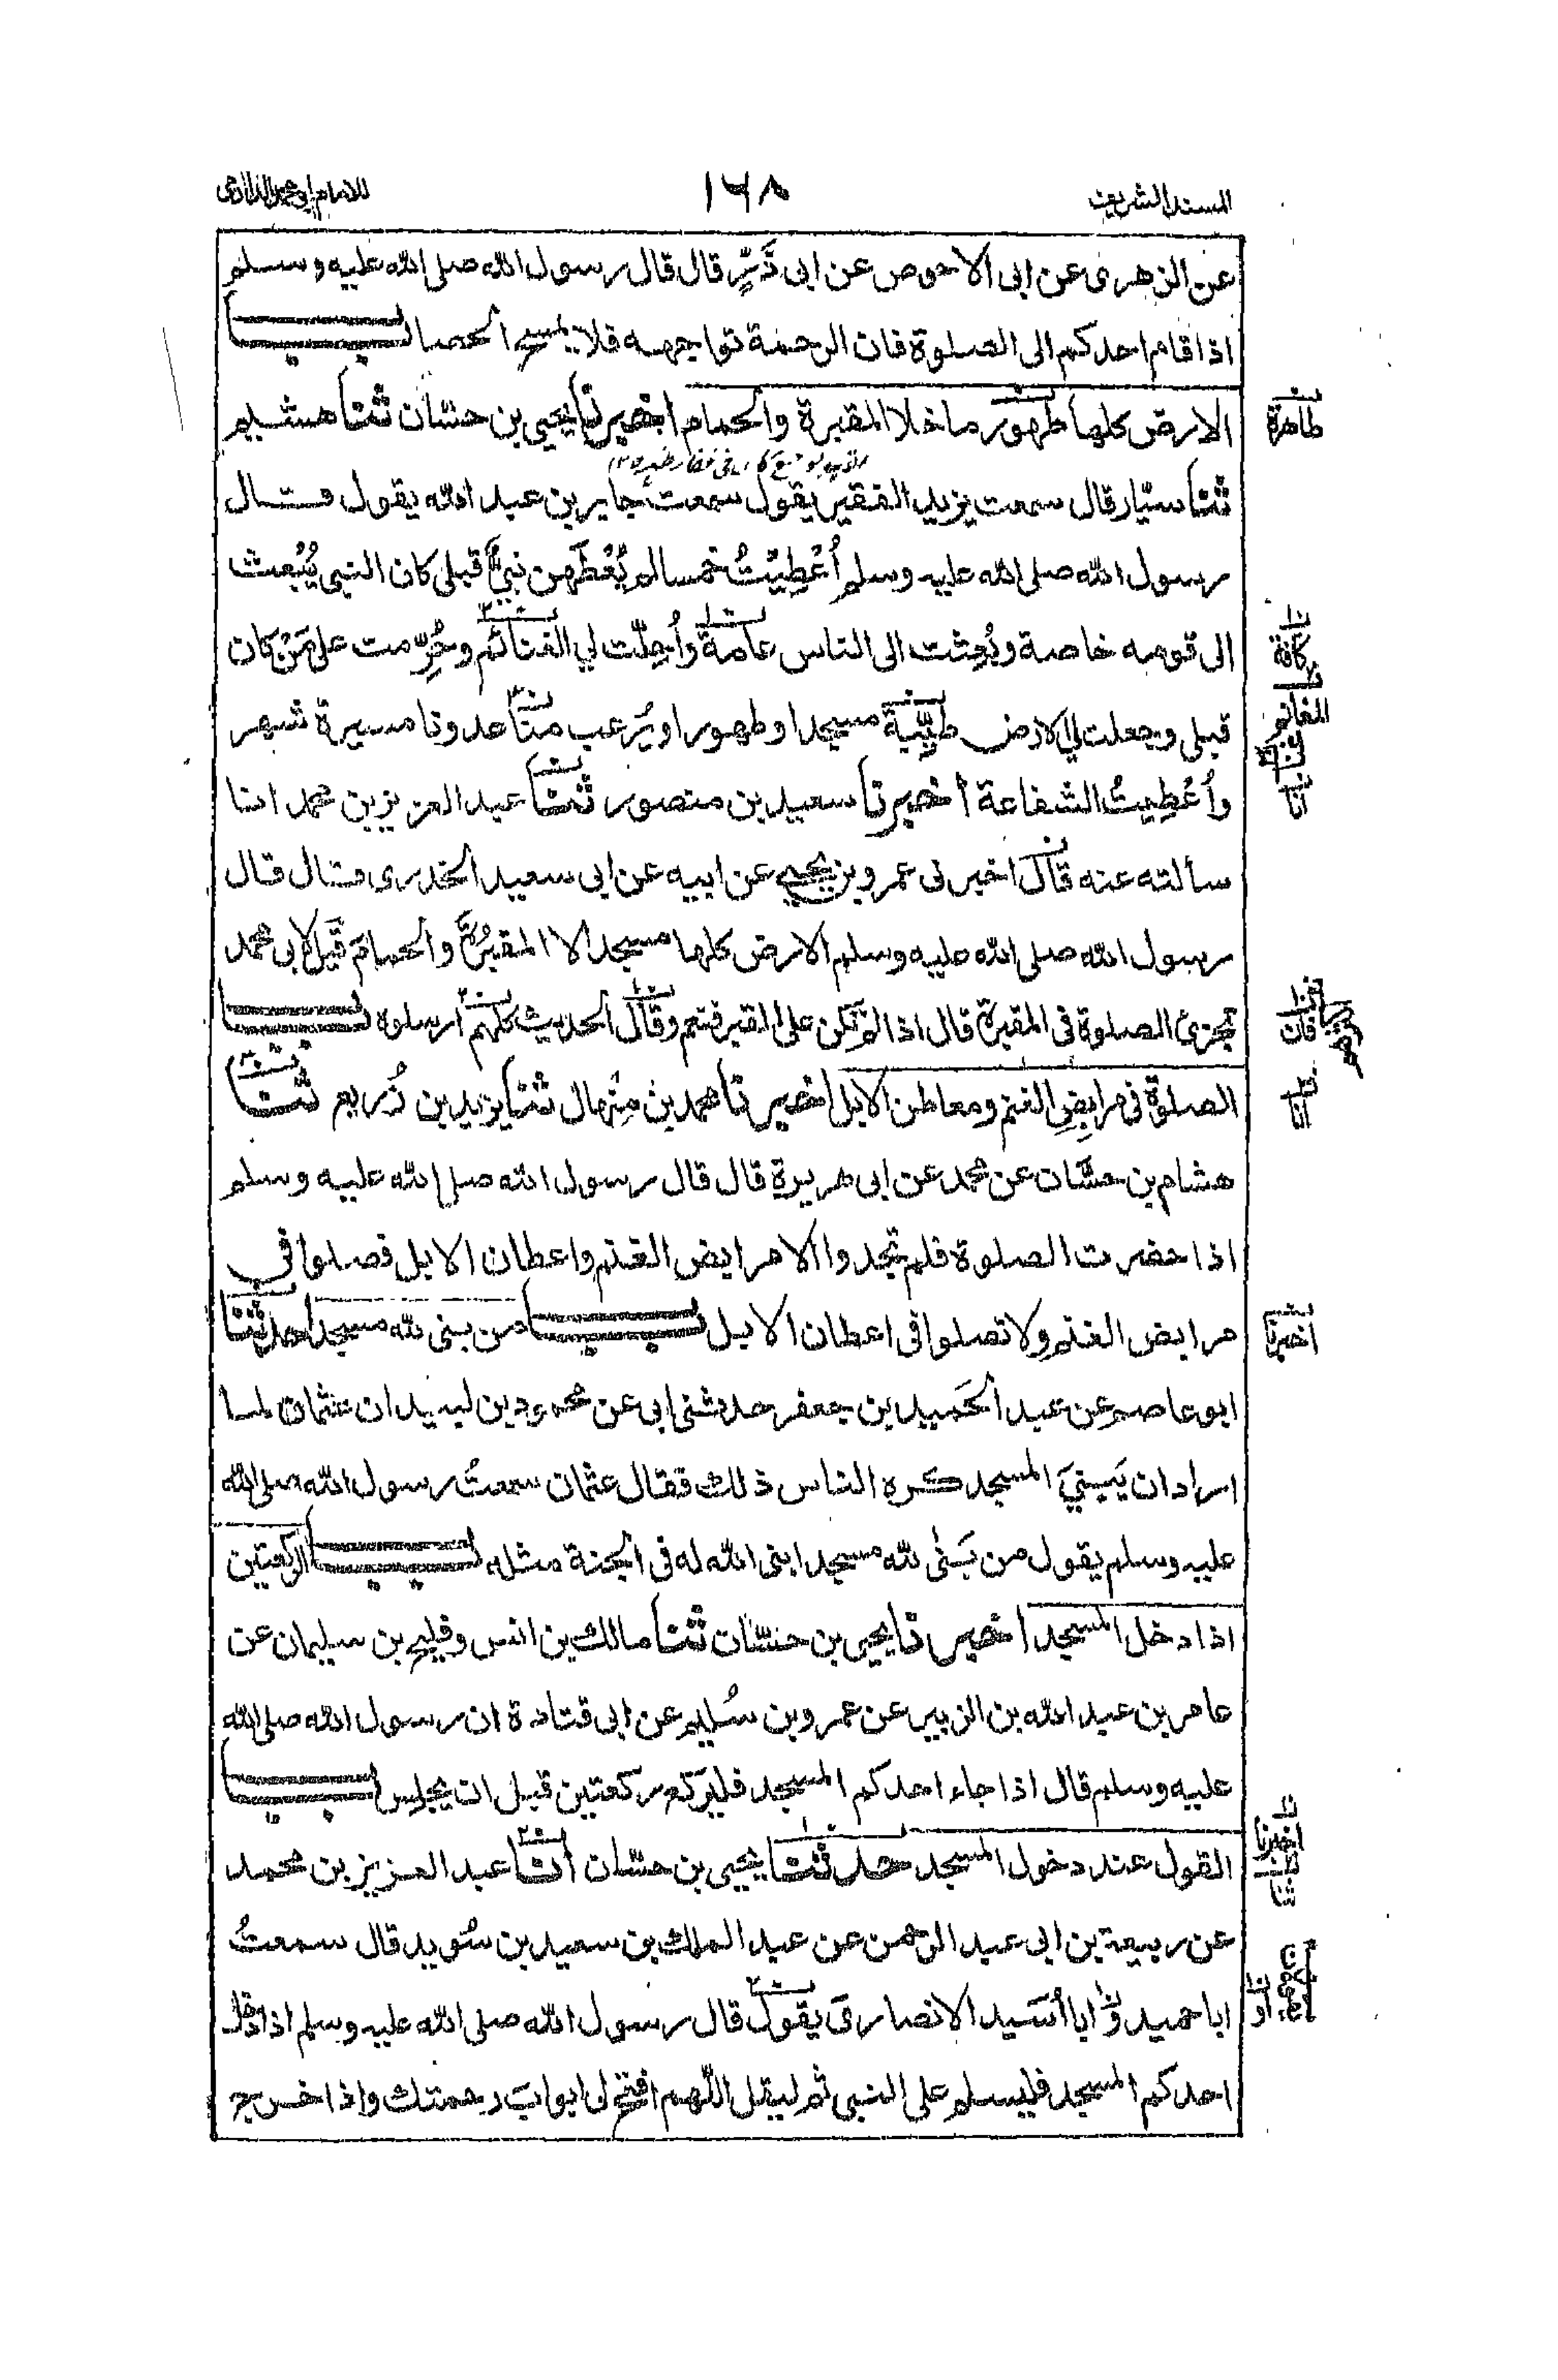 المسند الشريف ١٦٨ للامام ابي محمد الدارمي
عن الزهرى عن ابى الاحوص عن ابى ذَرٍّ قال قال رسول الله صلى الله عليه وسلم
اذا قام احدكم الى الصلوة فان الرحمة تواجهه فلا يمسح الحصا باب
الارض كلها طهور ما خلا المقبرة والحمام اخبرنا يحيى بن حسّان ثنا هشيم
طاهرة
ثنا سيّار قال سمعت يزيد الفقير يقول سمعت جابر بن عبد الله يقول قال
رسول الله صلى الله عليه وسلم أُعْطِيْتُ خمسا لم يُعْطَهن نبيٌّ قبلى كان النبى يُبْعث
الى قومه خاصة وبُعِثت الى الناس عامةً وأُحِلّت لي الغنائم وحُرِّمت على مَنْ كان
كافة
قبلى وجعلت لي الارض طيِّبة مسجدا وطهورا ويُرعب منّا عدونا مسيرة شهر
المغانم
وأُعْطِيتُ الشفاعة أخبرنا سعيد بن منصور ثنا عبد العزيز بن محمد انا
انا
سألته عنه قال اخبرنى عمرو بن يحيى عن ابيه عن ابى سعيد الخدرى قال قال
رسول الله صلى الله عليه وسلم الارض كلها مسجد الا المقبرُةَ والحمامَ قيل لابى محمد
تجزئ الصلوة فى المقبرة قال اذا لم تكن على القبر فنعم وقال الحديث كلهم ارسلوه باب
فان
الصلوة فى مرابضِ الغنم ومعاطن الابل اخبرنا محمد بن مِنهال ثنا يزيد بن زُريع ثنا
انا
هشام بن حسّان عن محمد عن ابى هريرة قال قال رسول الله صلى الله عليه وسلم
اذا حضرت الصلوة فلم تجدوا الا مرابض الغنم واعطان الابل فصلوا في
مرابض الغنم ولا تصلوا فى اعطان الابل باب من بنى لله مسجدا حدثنا
اخبرنا
ابو عاصم عن عبد الحَميد بن جعفر حدثنى ابى عن محمود بن لبيد ان عثمان لما
اراد ان يَبنيَ المسجد كره الناس ذلك فقال عثمان سمعتُ رسول الله صلى الله
عليه وسلم يقول من بَنٰى لله مسجدا بنى الله له فى الجنة مثله باب الركعتين
اذا دخل المسجد اخبرنا يحيى بن حسّان ثنا مالك بن انس وفليح بن سليمان عن
عامر بن عبد الله بن الزبير عن عمرو بن سُليم عن ابى قتادة ان رسول الله صلى الله
عليه وسلم قال اذا جاء احدكم المسجد فليركع ركعتين قبل ان يجلِس باب
القول عند دخول المسجد حدثنا يحيى بن حسّان أنا عبد العزيز بن محمد
اخبرنا
ثنا
عن ربيعة بن ابى عبد الرحمن عن عبد الملك بن سعيد بن سُويد قال سمعتُ
ابا حميد وَ ابا أُسَيد الانصارى يقول قال رسول الله صلى الله عليه وسلم اذا دخل
أو
احدكم المسجد فليسلم على النبى ثم ليقل اللّهم افتح لى ابوابَ رحمتك واذا خرج